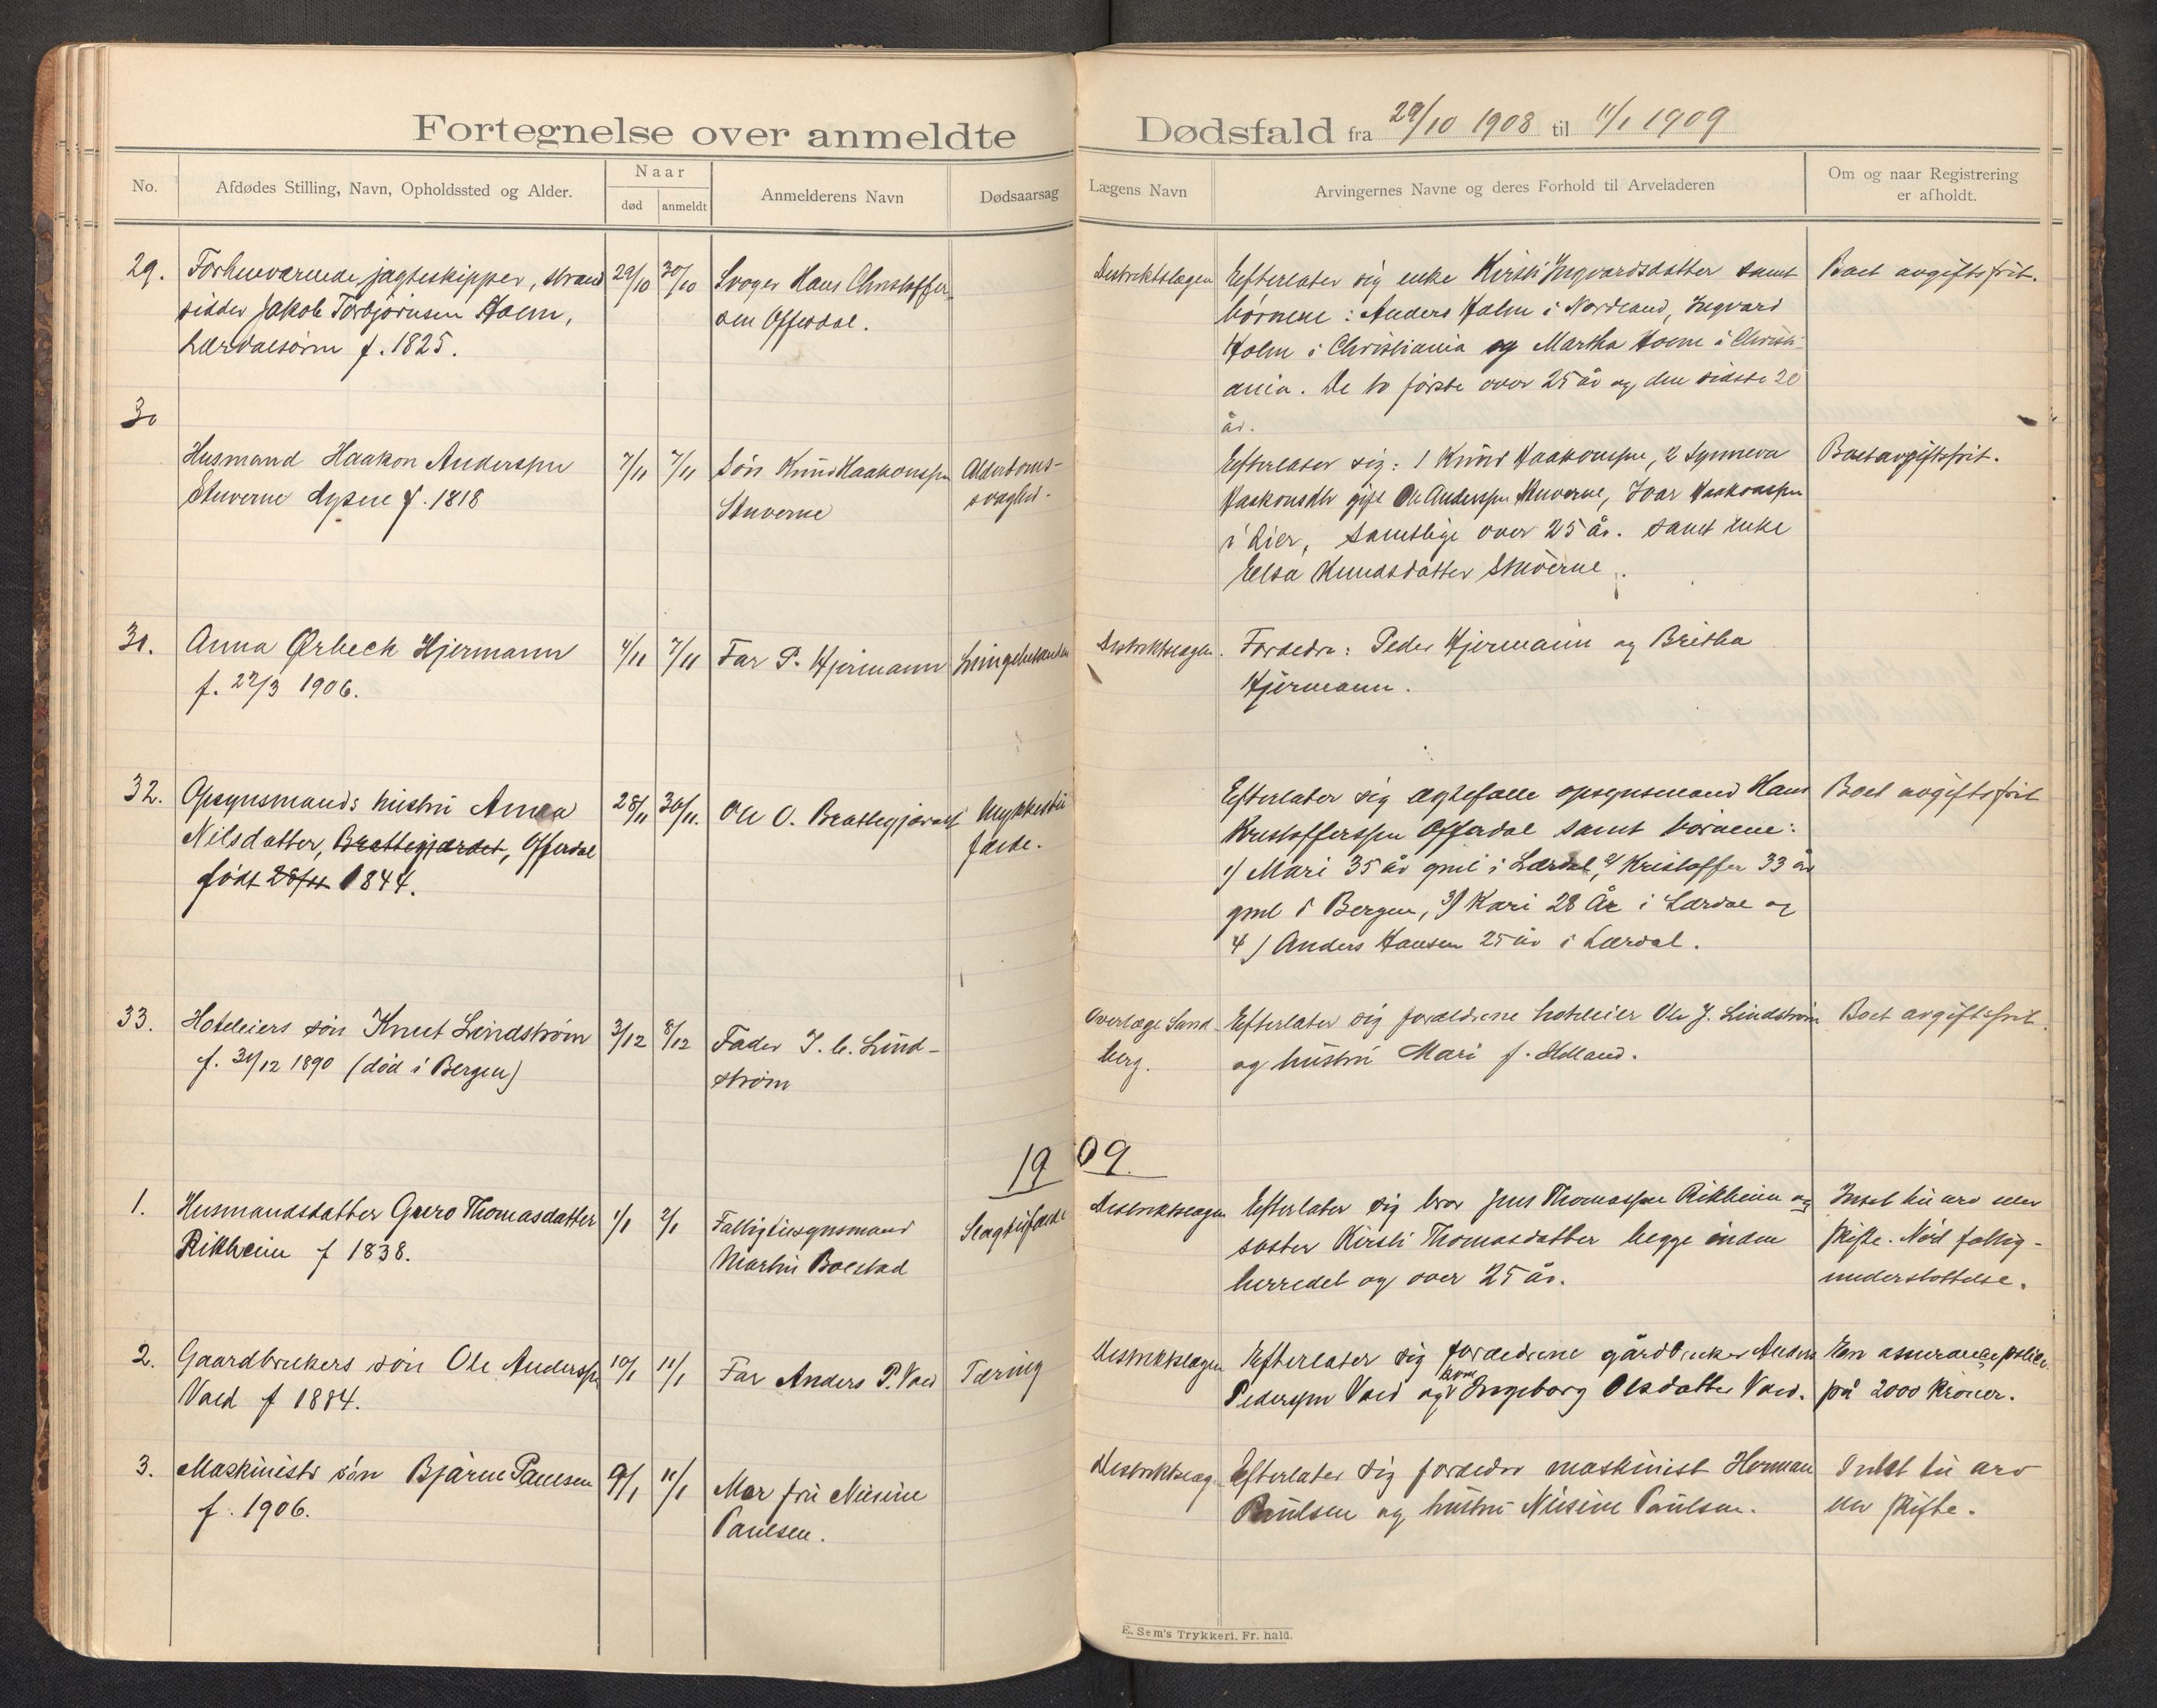 Fortegnelse over anmeldte Dødsfald fra 29/10 1908 til 11/1 1909
No.
Afdødes Stilling, Navn, Opholdssted og Alder.
Naar
død
anmeldt
Anmelderens Navn
Dødsaarsag
Lægens Navn
Arvingernes Navne og deres Forhold til Arveladeren
Om og naar Registrering
er afholdt.
29.
Forhenværende jagteskipper, strand
sidder Jakob Torbjørnsen Holm,
Lærdalsøren f. 1825.
29/10
30/10
Svoger Hans Christoffer-
sen Offerdal.
Distriktslægen
Efterlater sig enke Kirsti Ingvardsdatter samt
børnene: Anders Holm i Nordland, Ingvard
Holm i Christiania og Martha Holm i Christi-
ania. De to første over 25 år og den sidste 20
år.
Boet avgiftsfrit.
30
Husmand Haakon Anderssen
Stuverne f. 1818
7/11
7/11
Søn Knud Haakonssen
Stuverne
Alderdoms-
svaghed.
Efterlater sig: 1 Knud Haakonssen, 2 Synneva
Haakonsdtr gift Ole Anderssen Stuverne, Ivar Haakonssen
i Lier, samtlige over 25 år. samt enke
Elsa Knudsdatter Stuverne.
Boet avgiftsfrit.
31.
Anna Ørbeck Hjermann
f. 27/3 1906.
4/11
7/11
Far P. Hjermann
Distriktslægen.
Forældre: Peder Hjermann og Britha
Hjermann.
32.
Opsynsmands hustru Anna
Nilsdatter, Brattegjærdet, Offerdal
født 28/11 1844.
28/11
30/11.
Ole O. Brattegjærdet
Ulykkestil
fælde.
Efterlater sig ægtefælle opsynsmand Hans
Kristofferssen Offerdal samt børnene:
1) Mari 35 år gml i Lærdal, 2) Kristoffer 33 år
gml i Bergen, 3) Kari 28 År i Lærdal og
4) Anders Hansen 25 år i Lærdal.
Boet avgiftsfrit
33.
Hoteleiers søn Knut Lindstrøm
f. 31/12 1890 (död i Bergen)
3/12
8/12
Fader J. Lind-
strøm
Overlæge Sand-
berg.
Efterlater sig forældrene hoteleier Ole J. Lindstrøm
og hustru Mari f. Holland.
Boet avgiftsfrit.
1909.
1.
Husmandsdatter Guro Thomasdatter
Rikheim f 1838.
1/1
2/1
Fattigtilsynsmand
Martin Bolstad
Slagtilfælde
Distriktslægen
Efterlater sig bror Jens Thomassen Rikheim og
søster Kirsti Thomasdatter begge inden
herredet og over 25 år.
Intet til arv eller
skifte. Nød fattig-
understøttelse.
2.
Gaardbrukers søn Ole Anderssen
Vold f 1884.
10/1
11/1
Far Anders P. Vold
Tæring
Distriktslægen
Efterlater sig forældrene gårdbruker Anders
Pederssen Vold og kone Ingeborg Olsdatter Vold.
En assurancepolice
på 2000 kroner.
3.
Maskinists søn Bjarne Paulsen
f. 1906.
9/1
11/1
Mor fru Nilsine
Paulsen.
Distriktslæg.
Efterlater sig forældre maskinist Herman
Paulsen og hustru Nilsine Paulsen.
Intet til arv
eller skifte.
E. Sem's Trykkeri, Fr. hald.